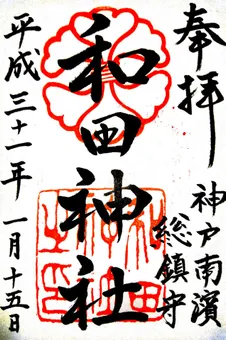 奉拝
神戸南濱
総鎮守
和田神社
平成三十一年一月十五日